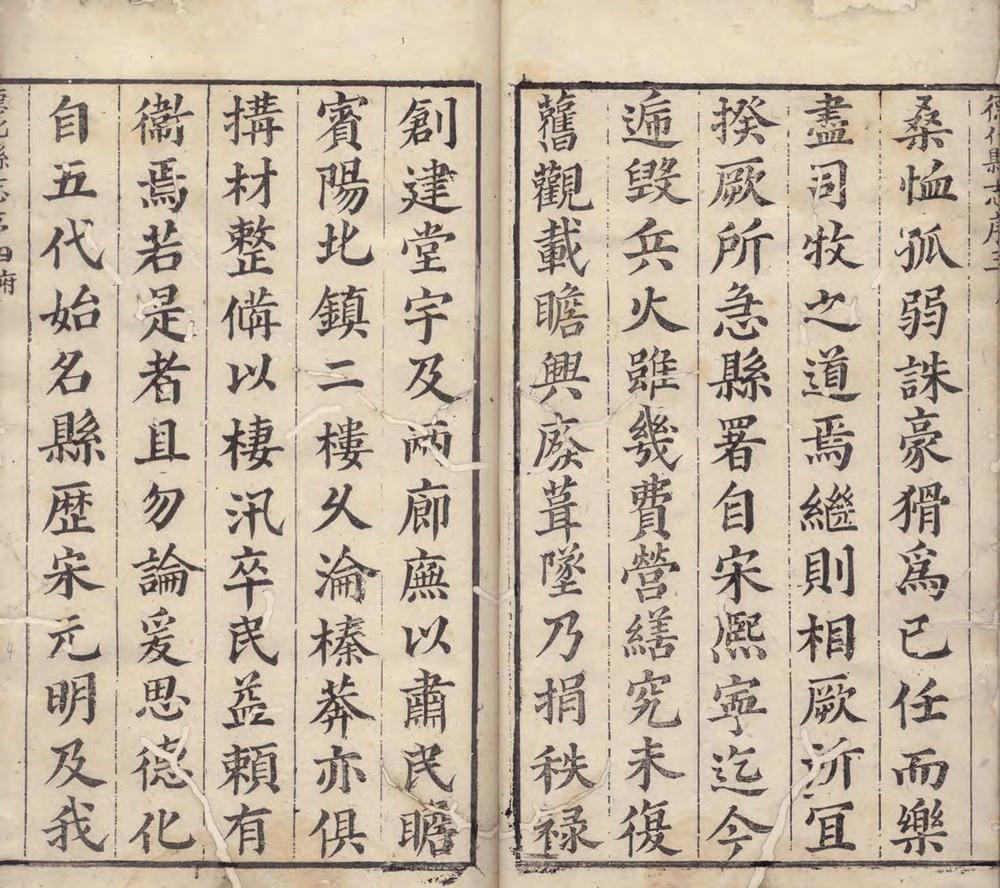 德化縣志序三
桑恤孤弱誅豪猾爲已任而樂
盡司牧之道焉繼則相厥所宜
揆厥所急縣署自宋熙寧迄今
遞毀兵火雖幾費營繕究未復
舊觀載瞻興廢葺墜乃捐秩祿
創建堂宇及兩廊廡以肅民瞻
賓陽北鎮二樓久淪榛莽亦俱
搆材整備以棲汛卒民益賴有
衞焉若是者且勿論爰思德化
自五代始名縣歴宋元明及我
德化縣志序四